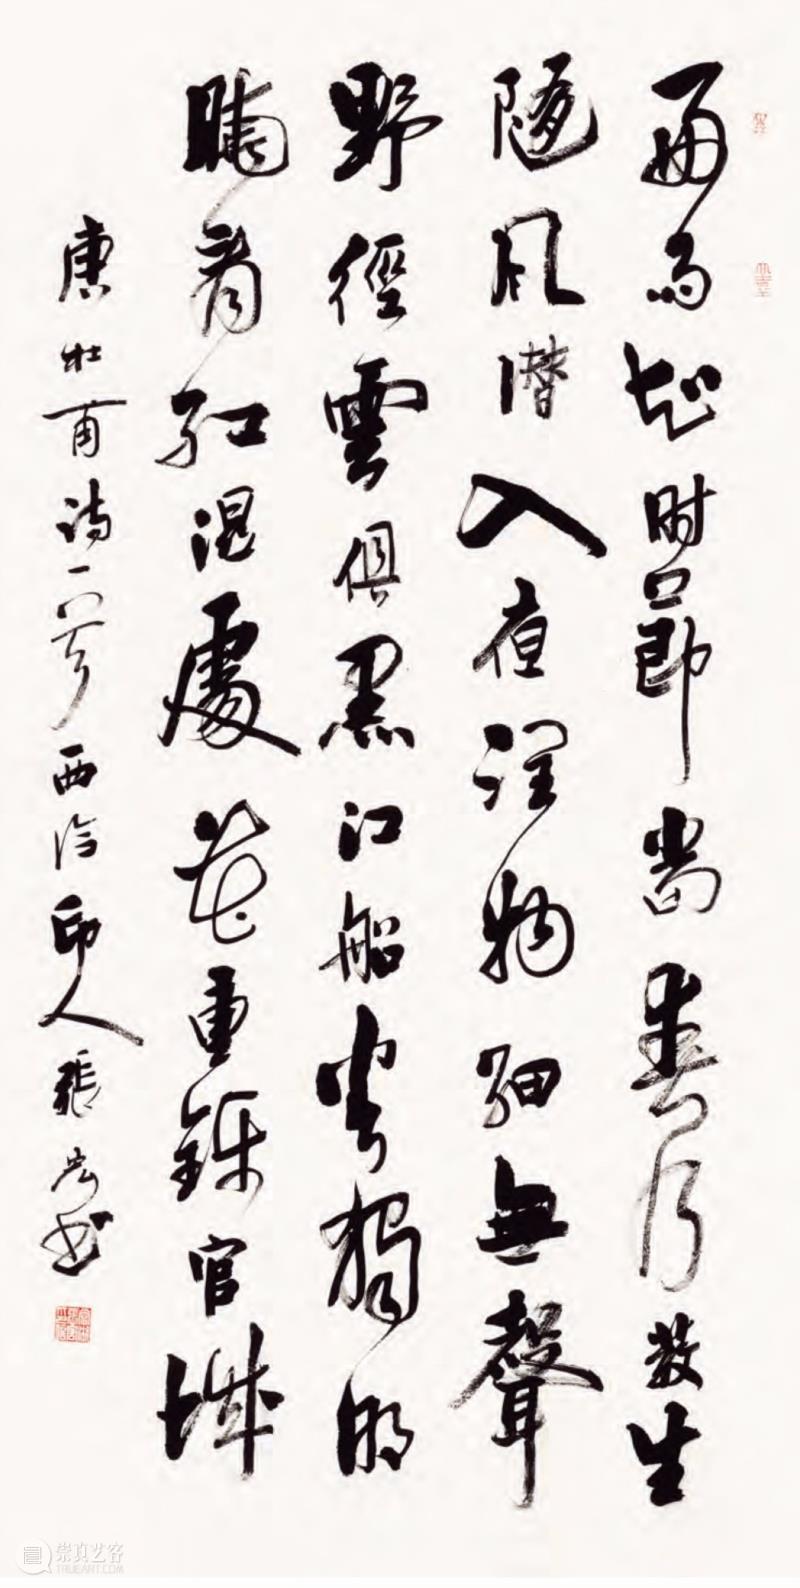 好雨知时節當春乃發生
隨風潜入夜潤物細無聲
野徑雲俱黑江船火獨明
曉看紅濕處花重錦官城
唐杜甫詩一首西泠印人張书
崇真艺客
TRUEART.COM